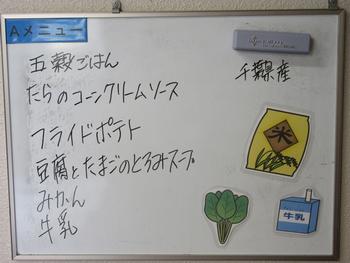 Aメニュー
五穀ごはん
たらのコーンクリームソース
フライドポテト
豆腐とたまごのとろみスープ
みかん
牛乳
千葉県産
米
牛乳